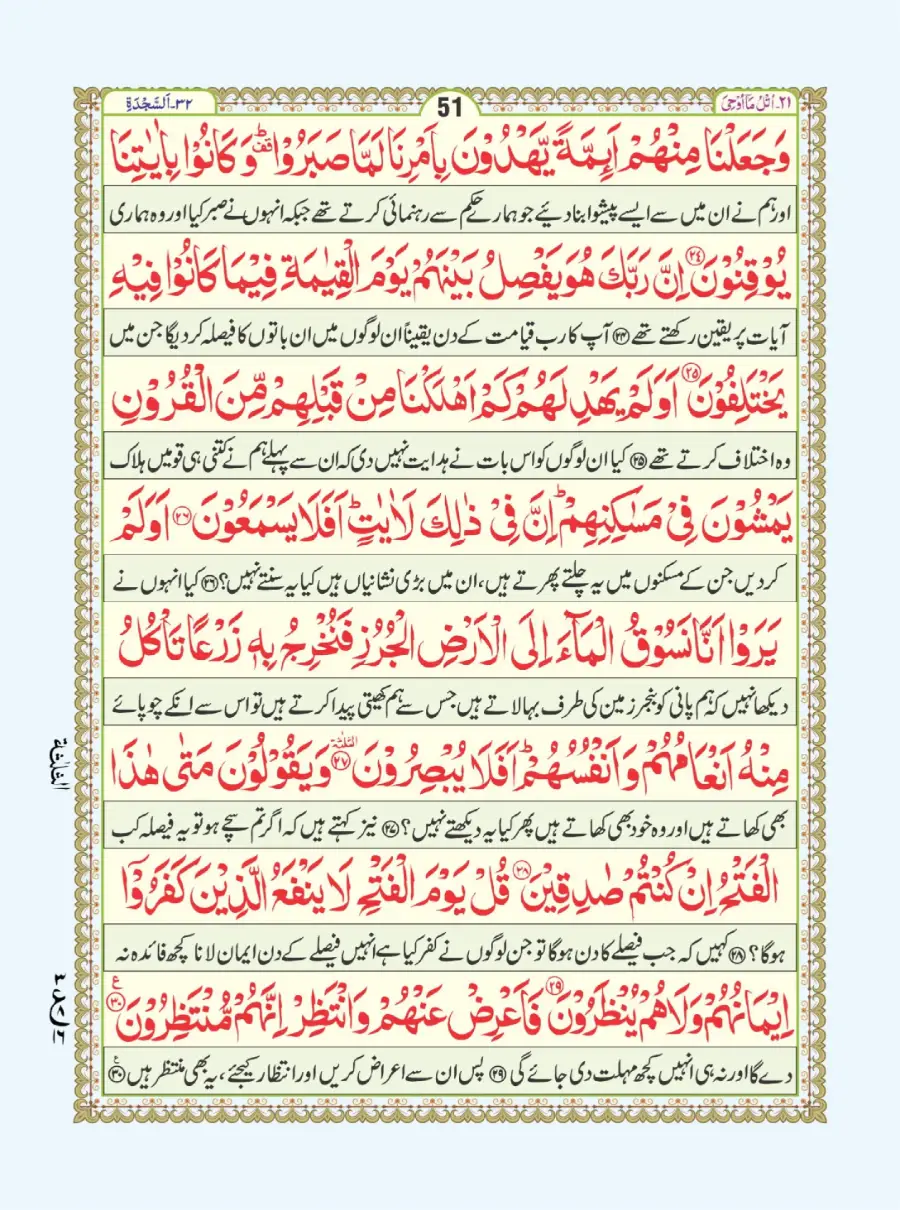 ۲۱۔ اُتْلُ مَآ اُوْحِیَ
51
۳۲۔ اَلسَّجْدَةِ
وَ جَعَلْنَا مِنْهُمْ اَىِٕمَّةً یَّهْدُوْنَ بِاَمْرِنَا لَمَّا صَبَرُوْا ۫ؕ وَ كَانُوْا بِاٰیٰتِنَا
اور ہم نے ان میں سے ایسے پیشوا بنا دیئے جو ہمارے حکم سے رہنمائی کرتے تھے جبکہ انہوں نے صبر کیا اور وہ ہماری
یُوْقِنُوْنَ ۲۴ اِنَّ رَبَّكَ هُوَ یَفْصِلُ بَیْنَهُمْ یَوْمَ الْقِیٰمَةِ فِیْمَا كَانُوْا فِیْهِ
آیات پر یقین رکھتے تھے ۲۴ آپ کا رب قیامت کے دن یقیناً ان لوگوں میں ان باتوں کا فیصلہ کردیگا جن میں
یَخْتَلِفُوْنَ ۲۵ اَوَ لَمْ یَهْدِ لَهُمْ كَمْ اَهْلَكْنَا مِنْ قَبْلِهِمْ مِّنَ الْقُرُوْنِ
وہ اختلاف کرتے تھے ۲۵ کیا ان لوگوں کو اس بات نے ہدایت نہیں دی کہ ان سے پہلے ہم نے کتنی ہی قومیں ہلاک
یَمْشُوْنَ فِیْ مَسٰكِنِهِمْ ؕ اِنَّ فِیْ ذٰلِكَ لَاٰیٰتٍ ؕ اَفَلَا یَسْمَعُوْنَ ۲۶ اَوَ لَمْ
کردیں جن کے مسکنوں میں یہ چلتے پھرتے ہیں، ان میں بڑی نشانیاں ہیں کیا یہ سنتے نہیں؟ ۲۶ کیا انہوں نے
یَرَوْا اَنَّا نَسُوْقُ الْمَآءَ اِلَى الْاَرْضِ الْجُرُزِ فَنُخْرِجُ بِهٖ زَرْعًا تَاْكُلُ
دیکھا نہیں کہ ہم پانی کو بنجر زمین کی طرف بہا لاتے ہیں جس سے ہم کھیتی پیدا کرتے ہیں تو اس سے انکے چوپائے
مِنْهُ اَنْعَامُهُمْ وَ اَنْفُسُهُمْ ؕ اَفَلَا یُبْصِرُوْنَ ۲۷ وَ یَقُوْلُوْنَ مَتٰى هٰذَا
بھی کھاتے ہیں اور وہ خود بھی کھاتے ہیں پھر کیا یہ دیکھتے نہیں؟ ۲۷ نیز کہتے ہیں کہ اگر تم سچے ہو تو یہ فیصلہ کب
الْفَتْحُ اِنْ كُنْتُمْ صٰدِقِیْنَ ۲۸ قُلْ یَوْمَ الْفَتْحِ لَا یَنْفَعُ الَّذِیْنَ كَفَرُوْۤا
ہوگا؟ ۲۸ کہیں کہ جب فیصلے کا دن ہوگا تو جن لوگوں نے کفر کیا ہے انہیں فیصلے کے دن ایمان لانا کچھ فائدہ نہ
اِیْمَانُهُمْ وَ لَا هُمْ یُنْظَرُوْنَ ۲۹ فَاَعْرِضْ عَنْهُمْ وَ انْتَظِرْ اِنَّهُمْ مُّنْتَظِرُوْنَ ۳۰
دے گا اور نہ ہی انہیں کچھ مہلت دی جائے گی ۲۹ پس ان سے اعراض کریں اور انتظار کیجئے، یہ بھی منتظر ہیں ۳۰